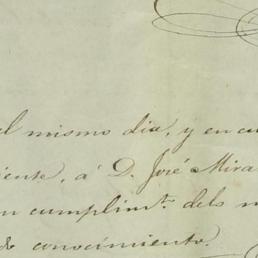 el mismo dia, y en cu
iente, á D. José Mira
n cumplimt.º dels m
do conocimiento.